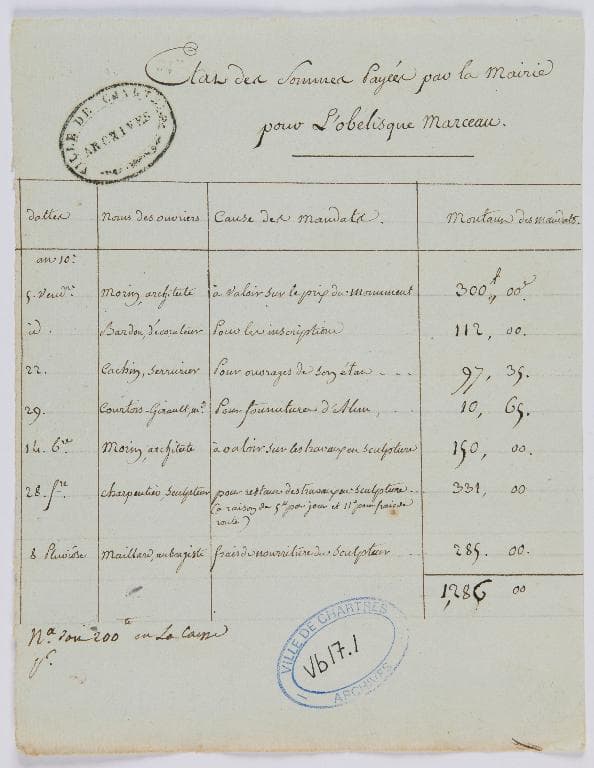 Etat des Sommes Payées par la Mairie
pour L'obelisque Marceau.
VILLE DE CHARTRES
ARCHIVES
dattes Noms des ouvriers Cause des mandats. Montant des mandats.
an 10.e
5. Vend.re Morin, architecte à valoir sur le prix du monument 300,, 00.
id. Bardou, décorateur Pour les inscriptions 112, 00.
22. Cochin, serrurier Pour ouvrages de son état 97, 35.
29. Courtois-Girault, m.d Pour fourniture d'Alun 10, 65.
14. b.re Morin, architecte à valoir sur les travaux en sculpture 150, 00.
28. f.re Charpentier, sculpteur pour restant des travaux en sculpture 331, 00
(à raison de 5.# par jour et 11.# pour frais de
route)
8 Pluviose Maillard, aubergiste frais de nourriture du sculpteur 285. 00.
1,286 00
N.a 200 en La Caisse
VILLE DE CHARTRES
Vb17.1
ARCHIVES